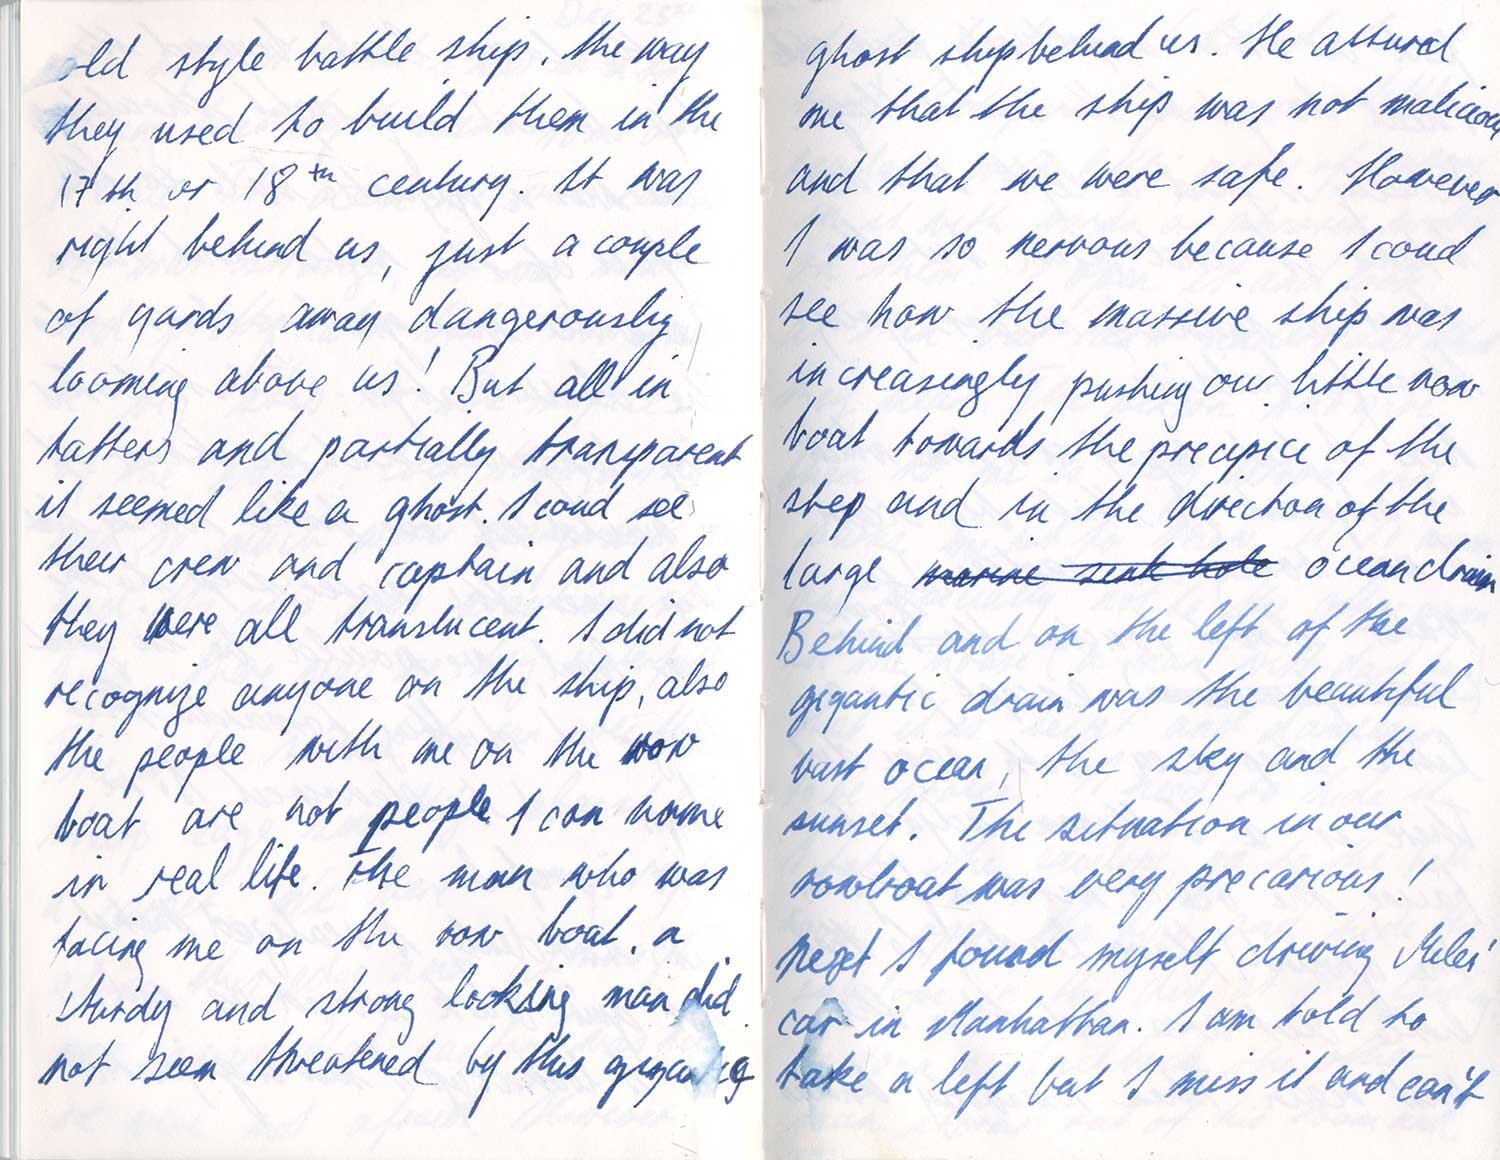 old style battle ship, the way
they used to build them in the
17th or 18th century. It was
right behind us, just a couple
of yards away dangerously
looming above us! But all in
tatters and partially transparent
it seemed like a ghost. I coud see
their crew and captain and also
they were all translucent. I did not
recognize anyone on the ship, also
the people with me on the row
boat are not people I can name
in real life. The man who was
facing me on the row boat, a
sturdy and strong looking man did
not seem threatened by this gigantic
ghost ship behind us. He assured
me that the ship was not malicious
and that we were safe. However
I was so nervous because I coud
see how the massive ship was
increasingly pushing our little row
boat towards the precipice of the
step and in the direction of the
large marine sink hole ocean drain
Behind and on the left of the
gigantic drain was the beautiful
vast ocean, the sky and the
sunset. The situation in our
rowboat was very precarious!
Next I found myself driving Jules'
car in Manhattan. I am told to
take a left but I miss it and can't